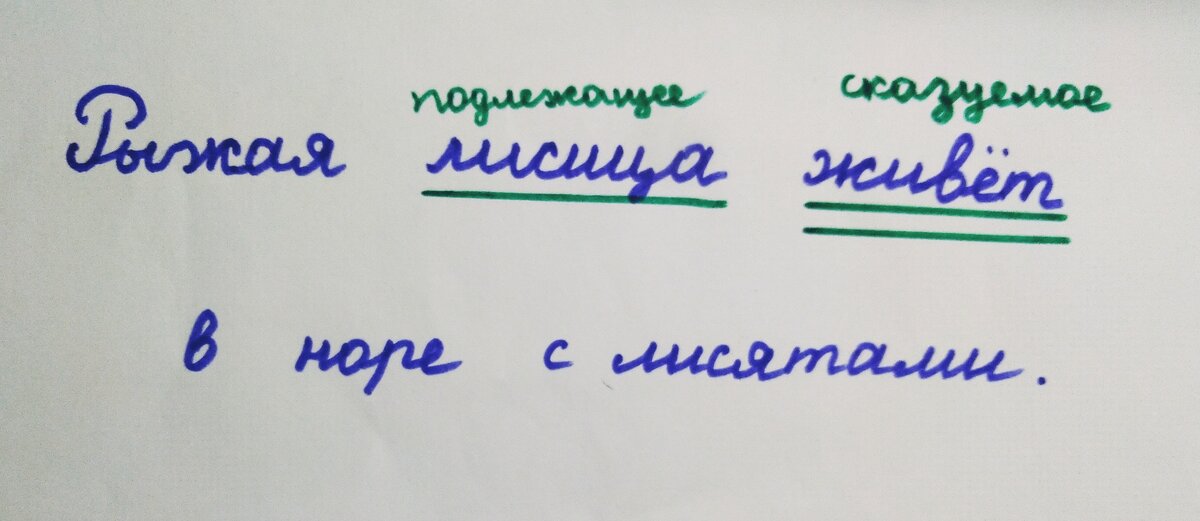 подлежащее сказуемое
Рыжая лисица живёт
в норе с лисятами.